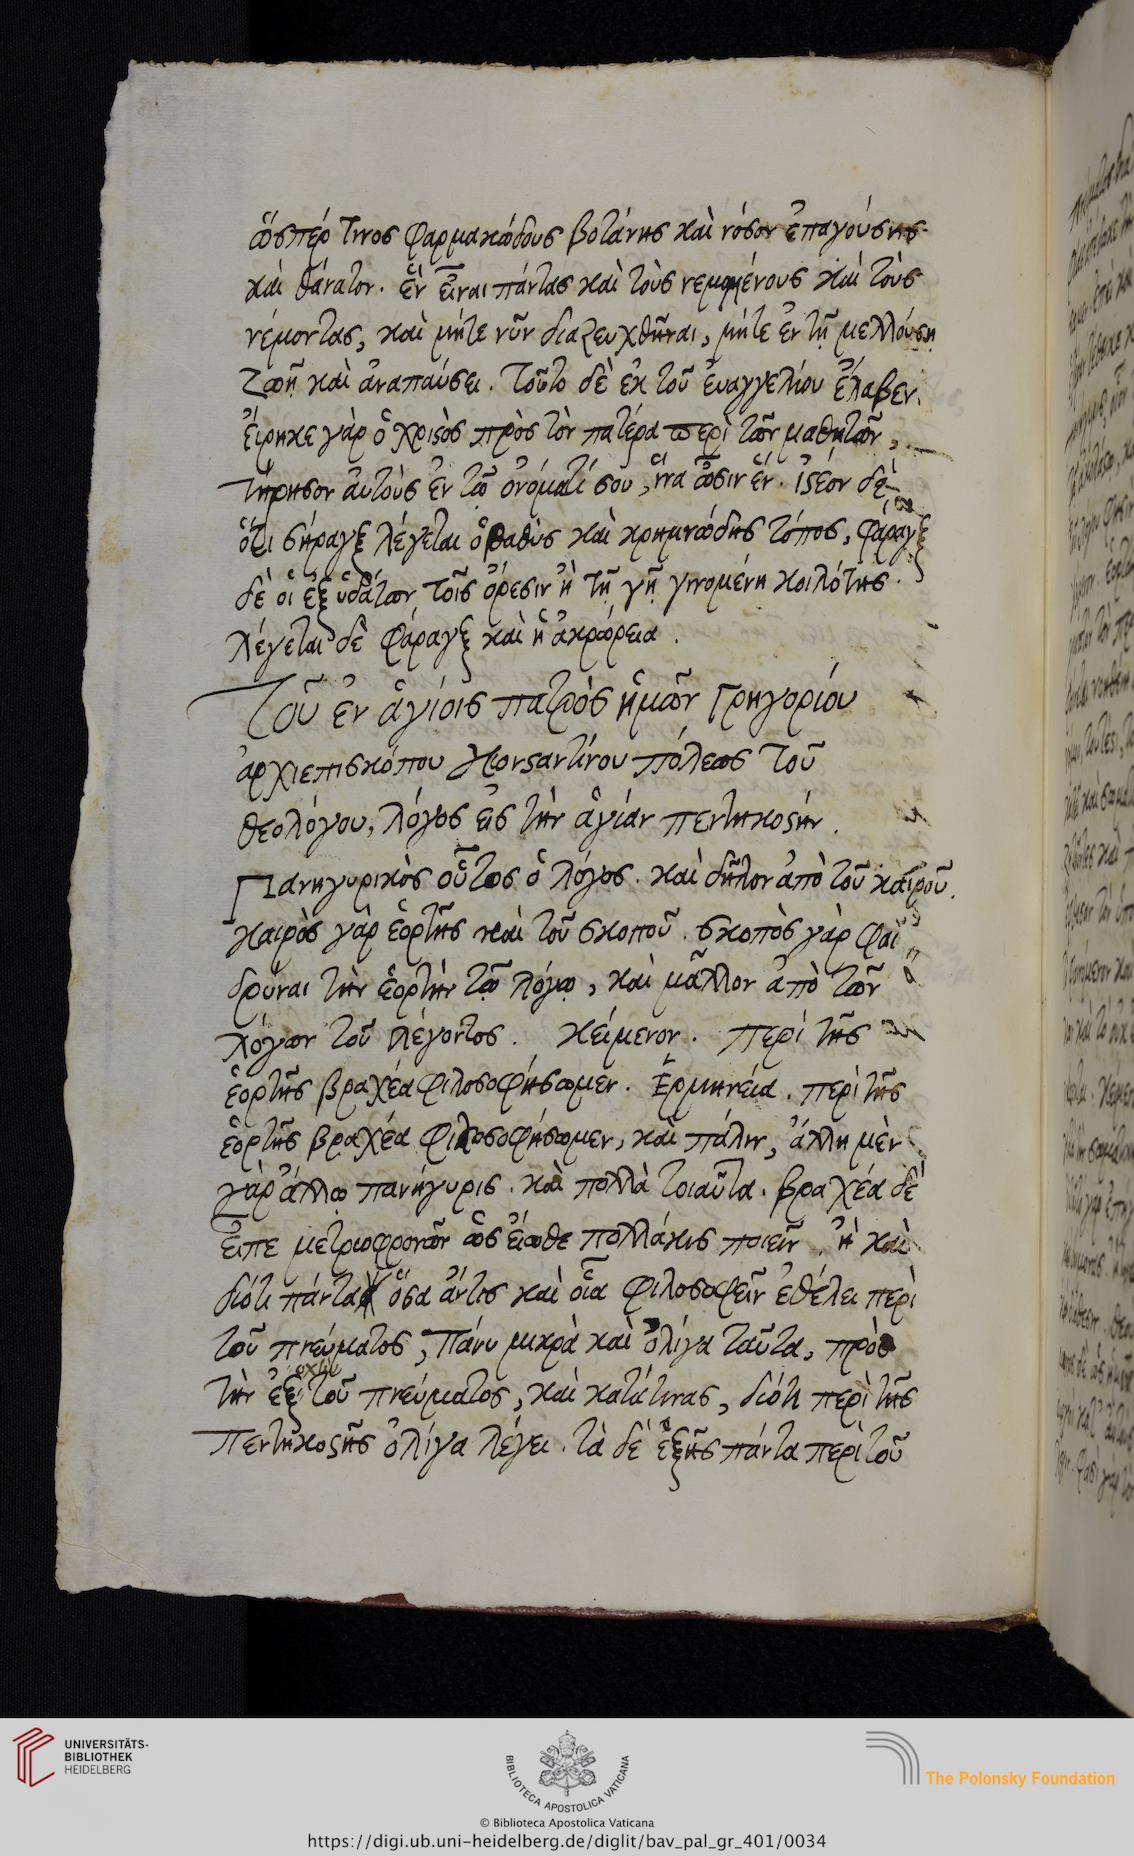 ὥσπέρ τινος φαρμακώδους βοτάνης καὶ νόσον ἐπαγούσης
καὶ θάνατον. ἓν εἶναι πάντας καὶ τοὺς νεμομένους καὶ τοὺς
νέμοντας, καὶ μήτε νῦν διαζευχθῆναι, μήτε ἐν τῇ μελλούσῃ
ζωῇ καὶ ἀναπαύσει. Τοῦτο δὲ ἐκ τοῦ ἐυαγγελίου ἔλαβεν.
ἔιρηκε γὰρ ὁ χριστὸς πρὸς τὸν πατέρα περὶ τῶν μαθητῶν,
τήρησον ἀυτοὺς ἐν τῷ ὀνόματί σου, ἵνα ὦσιν ἕν. ἰστέον δὲ
ὅτι σήραγξ λέγεται ὁ βαθὺς καὶ κρημνώδης τόπος, φάραγξ
δὲ οἱ ἐξ ὑδάτων τοῖς ὄρεσιν ἢ τῇ γῇ γινομένη κοιλότης.
λέγεται δὲ φάραγξ καὶ ἡ ἀκρώρεια.
Τοῦ ἐν ἁγίοις πατρὸς ἡμῶν Γρηγορίου
ἀρχιεπισκόπου Κονσταντίνου πόλεως τοῦ
θεολόγου, λόγος εἰς τὴν ἁγίαν πεντηκοστήν.
Πανηγυρικὸς οὗτος ὁ λόγος. καὶ δῆλον ἀπὸ τοῦ καιροῦ.
καιρὸς γὰρ ἑορτῆς καὶ τοῦ σκοποῦ. σκοπὸς γὰρ φαι
δρύναι τὴν ἑορτὴν τῷ λόγῳ, καὶ μᾶλλον ἀπὸ τῶν
λόγων τοῦ λέγοντος. Κείμενον. περὶ τῆς
ἑορτῆς βραχέα φιλοσοφήσωμεν. Ἑρμηνεία. περὶ τῆς
ἑορτῆς βραχέα φιλοσοφήσωμεν, καὶ πάλιν, ἄλλη μὲν
γὰρ ἄλλῳ πανήγυρις. καὶ πολλὰ τοιαῦτα. βραχέα δὲ
εἶπε μετριοφρονῶν ὡς ἔιωθε πολλάκις ποιεῖν. ἢ καὶ
διότι πάντα ὅσα ἄντις καὶ οἷα φιλοσοφεῖν ἐθέλει περὶ
τοῦ πνεύματος, πάνυ μικρὰ καὶ ὀλίγα ταῦτα, πρὸς
τὴν ἐξοχὴν τοῦ πνεύματος, καὶ κατάτινας, διότι περὶ τῆς
πεντηκοστῆς ὀλίγα λέγει. τὰ δὲ ἑξῆς πάντα περὶ τοῦ
UNIVERSITÄTS-
BIBLIOTHEK
HEIDELBERG
BIBLIOTECA APOSTOLICA VATICANA
The Polonsky Foundation
© Biblioteca Apostolica Vaticana
https://digi.ub.uni-heidelberg.de/diglit/bav_pal_gr_401/0034